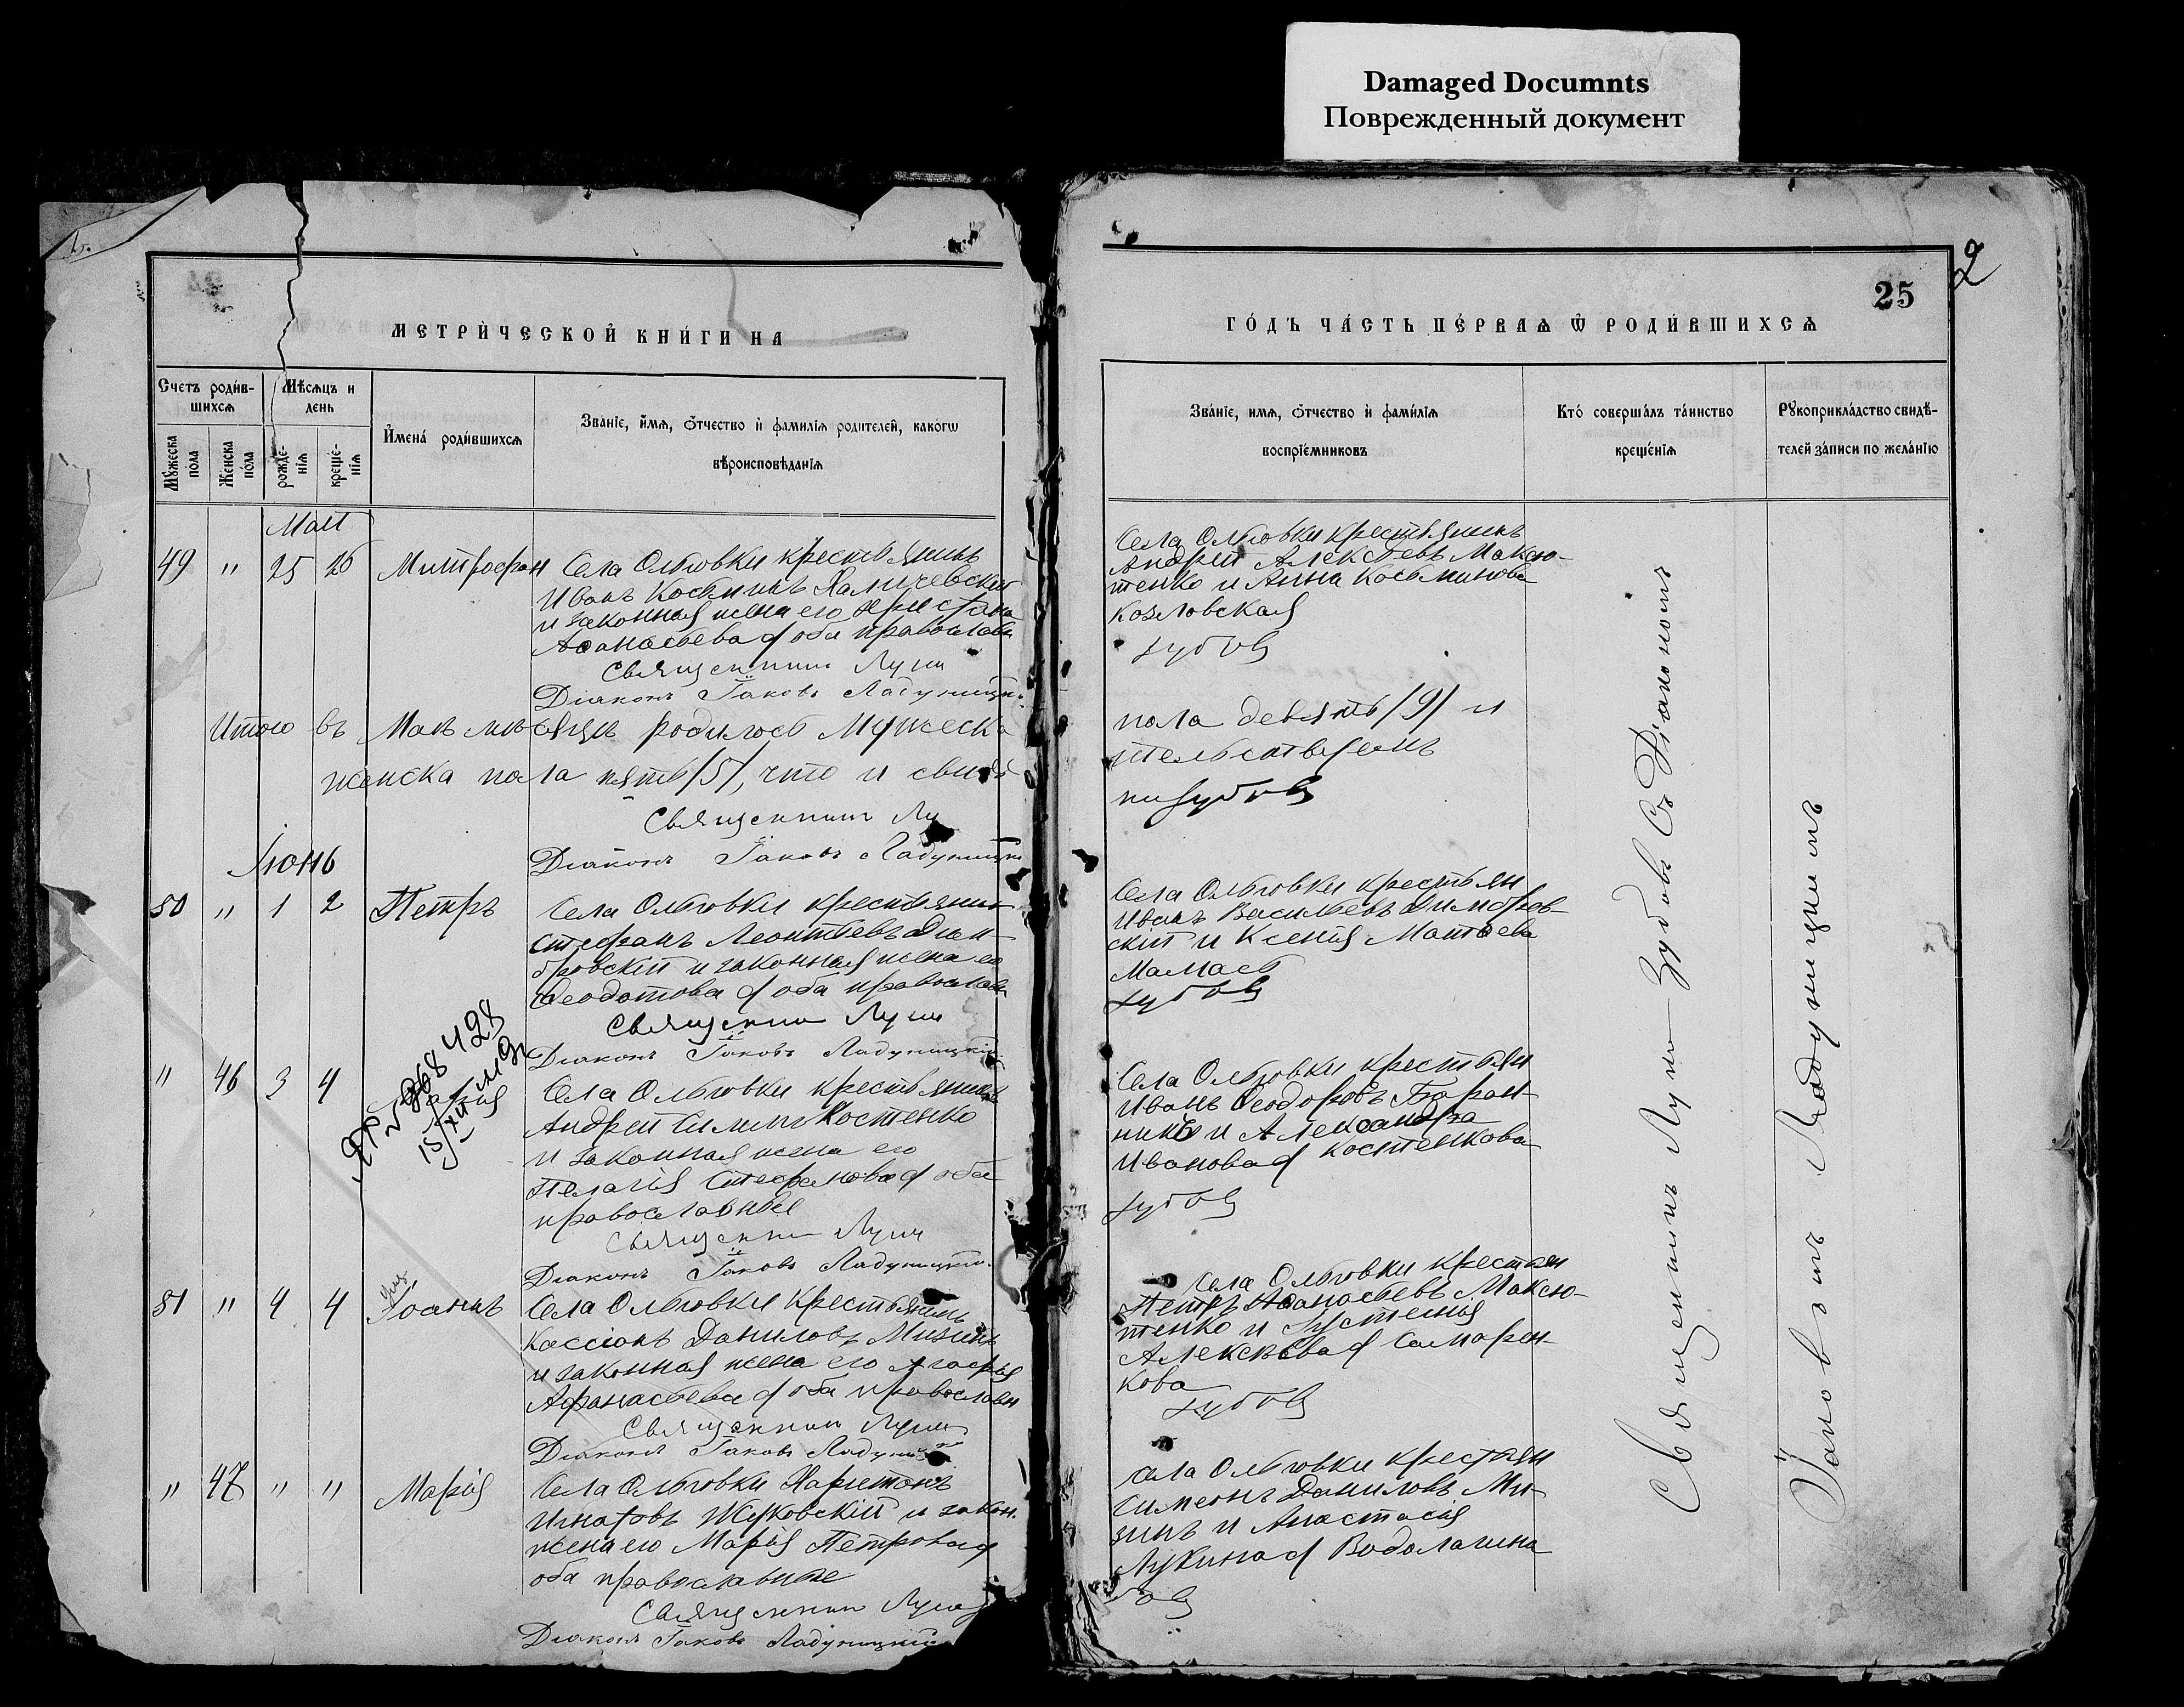 Damaged Documnts
Поврежденный документ
2
25
МЕТРИЧЕСКОЙ КНИГИ НА
Счетъ родив-
шихсѧ
Мѣсѧцъ и
день
Мꙋжеска
пола
Женска
пола
рожде-
нїѧ
креще-
нїѧ
Имена родившихсѧ
Званїе, имѧ, ѻтчество и фамилїѧ родителей, какогѡ
вѣроисповѣданїѧ
Май
49 " 25 26 Митрофан
Села Ольговки крестьянинъ
Иванъ Косьминъ
и законная жена его
Аѳанасьева оба православн
Священник Луки
Діаконъ Іаковъ Ладуницкі
Итого въ Маѣ мѣсяцѣ родилось мужеска
женска пола пять /5/, что и свидѣ
Священник Лу
Діаконъ Іаковъ Ладуницкі
Іюнь
50 " 1 2 Петръ
Села Ольговки крестьянин
Стефанъ Леонтьевъ Дим-
бровскій и законная жена его
Ѳеодотова оба православн
Священник Луки
Діаконъ Іаковъ Ладуницкій
" 46 3 4 Марія
15/XII
Села Ольговки крестьянинъ
Андрей Силинъ Костенко
и законная жена его
Пелагія Стефанова оба
православные
Священник Луки
Діаконъ Іаковъ Ладуницкій
51 " 4 4 Іоаннъ
Села Ольговки крестьянинъ
Кассіонъ Даниловъ Мизинъ
и законная жена его Агафія
Афанасьева оба православн
Священник Луки
Діаконъ Іаковъ Ладуницкі
" 47 " " Марія
Села Ольговки Харитонъ
Игнатовъ Жуковскій и закон.
жена его Марія Петрова
оба православные
Священник Лука
Діаконъ Іаковъ Ладуницкій
ГОДЪ ЧАСТЬ ПЕРВАѦ Ѿ РОДИВШИХСѦ
Званїе, имѧ, ѻтчество и фамилїѧ
воспрїемниковъ
Кто совершалъ таинство
крещенїѧ
Рꙋкоприкладство свидѣ-
телей записи по желанїю
Села Ольговки крестьянинъ
Андрей Алексѣевъ Максю-
тенко и Анна Косьминова
Козловская
Зубовъ
пола девять /9/ и
тельствуемъ
Зубовъ
Села Ольговки крестьян
Иванъ Васильевъ Димбров-
скій и Ксенія Матѳева
Малась
Зубовъ
Села Ольговки крестьян
Иванъ Ѳеодоровъ Баран-
никъ и Александра
Иванова Костенкова
Зубовъ
Села Ольговки крестьян
Петръ Аѳанасьевъ Максю-
тенко и Іустинія
Алексѣева Самарен-
кова
Зубовъ
Села Ольговки крестьян
Симеонъ Даниловъ Ми-
зинъ и Анастасія
Лукина Водолагина
бовъ
Священникъ Лука Зубовъ Съ Діакономъ
Іаковомъ Ладуницкимъ